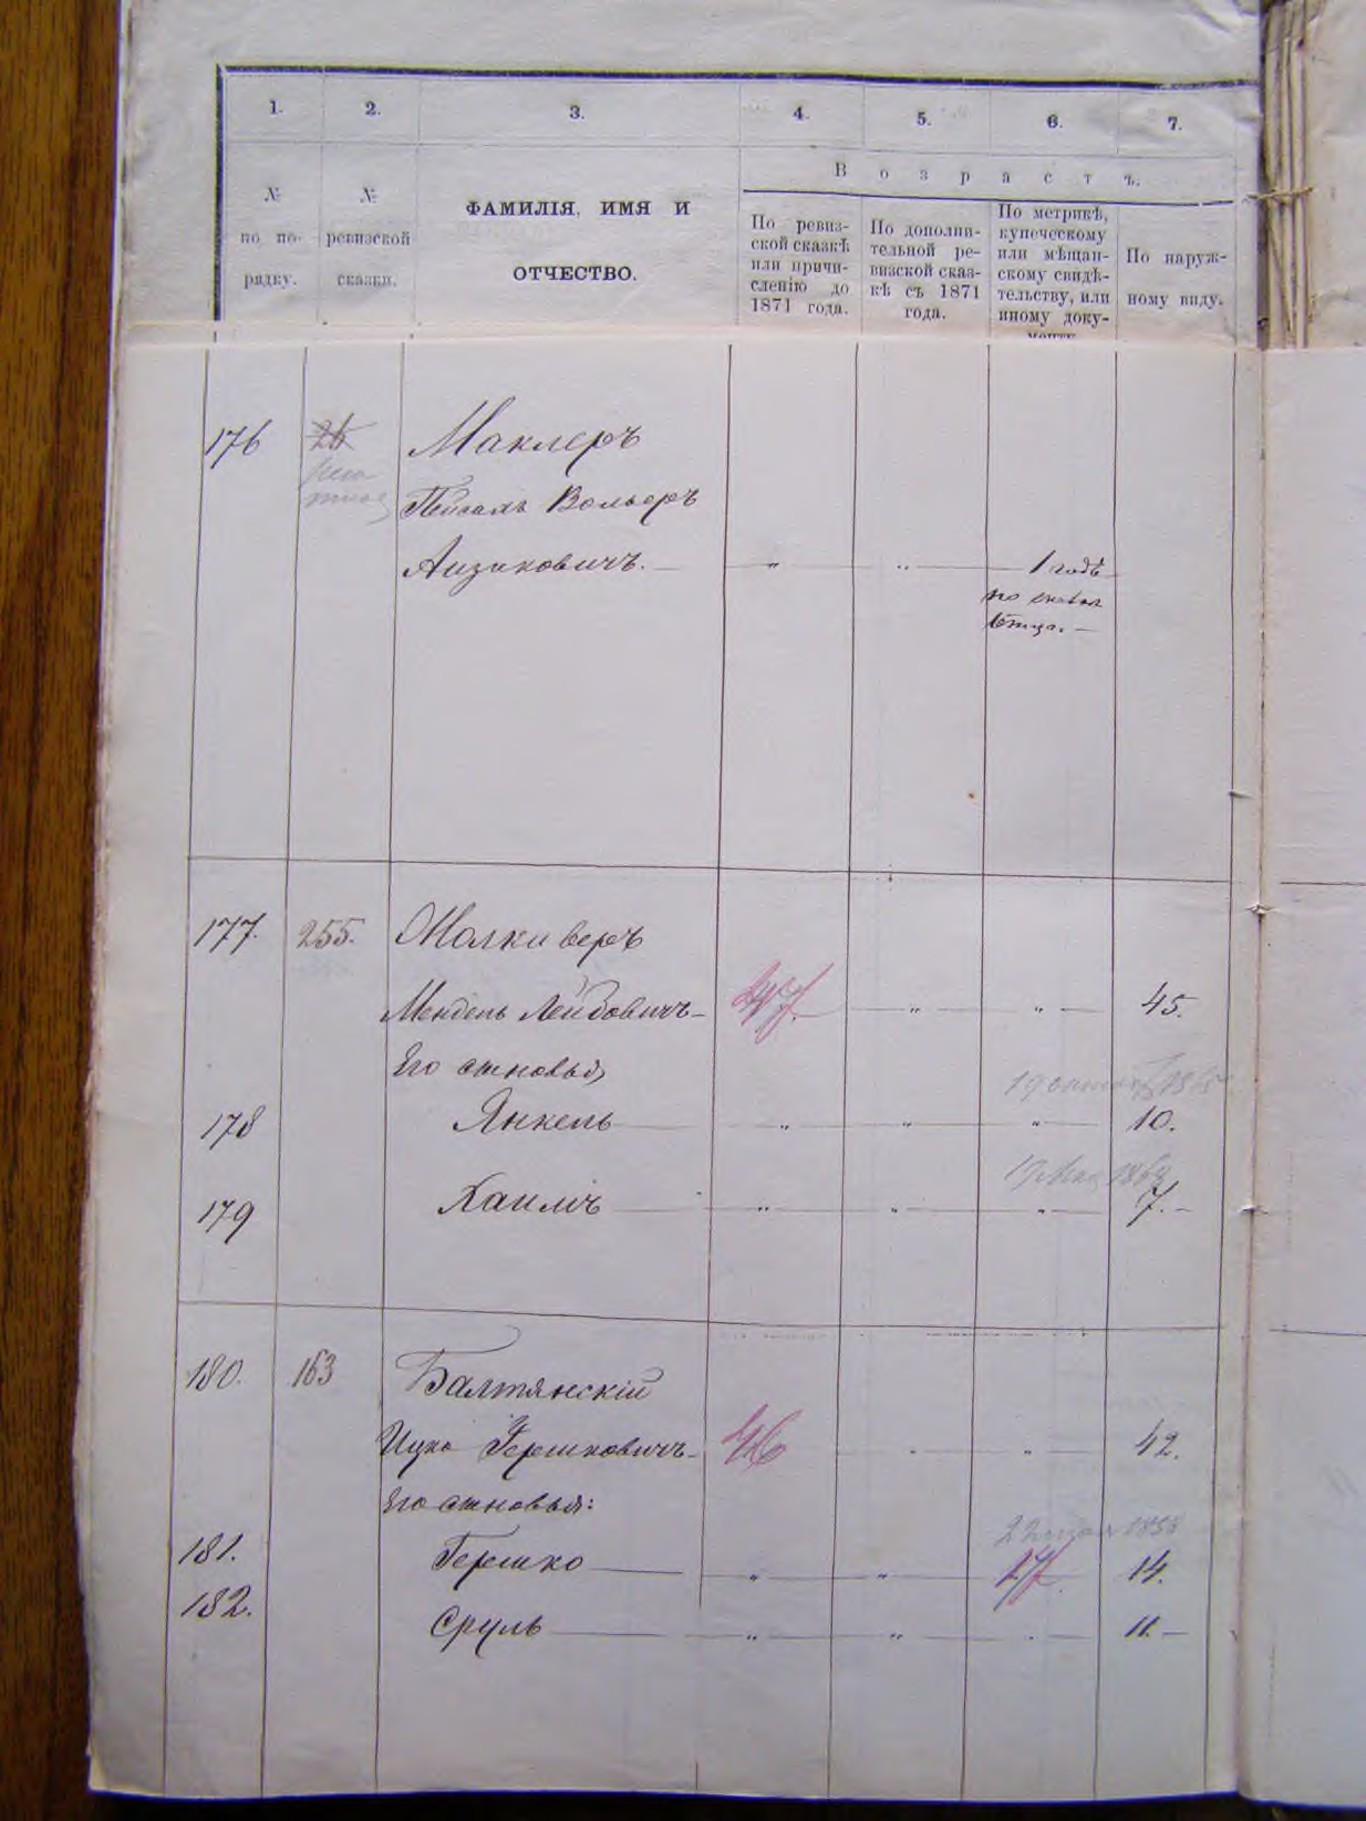 1. 2. 3. 4. 5. 6. 7.
Возрастъ.
№ по по-
рядку.
№
ревизской
сказки.
ФАМИЛІЯ, ИМЯ И
ОТЧЕСТВО.
По ревиз-
ской сказкѣ
или причи-
сленію до
1871 года.
По дополни-
тельной ре-
визской сказ-
кѣ съ 1871
года.
По метрикѣ,
купеческому
или мѣщан-
скому свидѣ-
тельству, или
иному доку-
По наруж-
ному виду.
176 26 Маклеръ
Вольфъ
Аизиковичъ. — „ „ 1 годъ
по
отца. —
177. 255. Молкиверъ
Мендель Лейбовичъ — 47. „ „ 45.
Его сыновья
1865
178 Янкель „ „ „ 10.
19 Мая 1868
179 Хаимъ „ „ „ 7. —
180. 163 Балтянскій
Ицко Гершковичъ — 46 „ „ 42.
Его сыновья:
22 1858
181. Гершко „ „ 17. 14.
182. Сруль „ „ „ 11. —